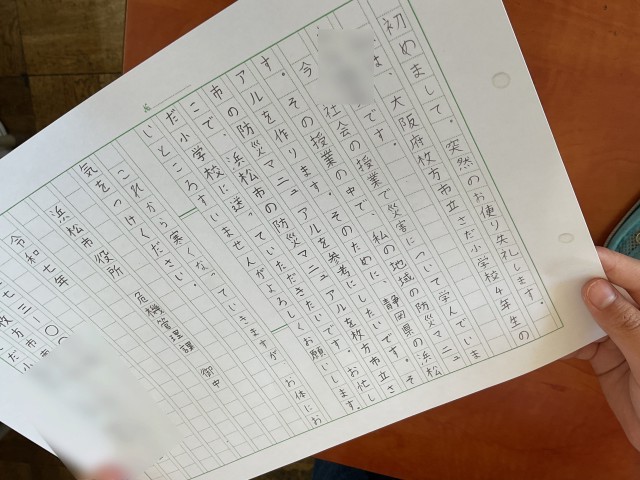 初めまして。突然のお便り失礼します。
は、大阪府枚方市立さだ小学校4年生の
です。
今 社会の授業で災害について学んでいま
す。その授業の中で、私の地域の防災マニュ
アルを作ります。そのために、静岡県の浜松
市の防災マニュアルを参考にしたいです。そ
こで、浜松市の防災マニュアルを枚方市立さ
だ小学校に送っていただきたいです。お忙し
いところすいませんがよろしくお願いします。
これから寒くなっていきますが、お体にお
気をつけください。
浜松市役所 危機管理課 御中
令和七年